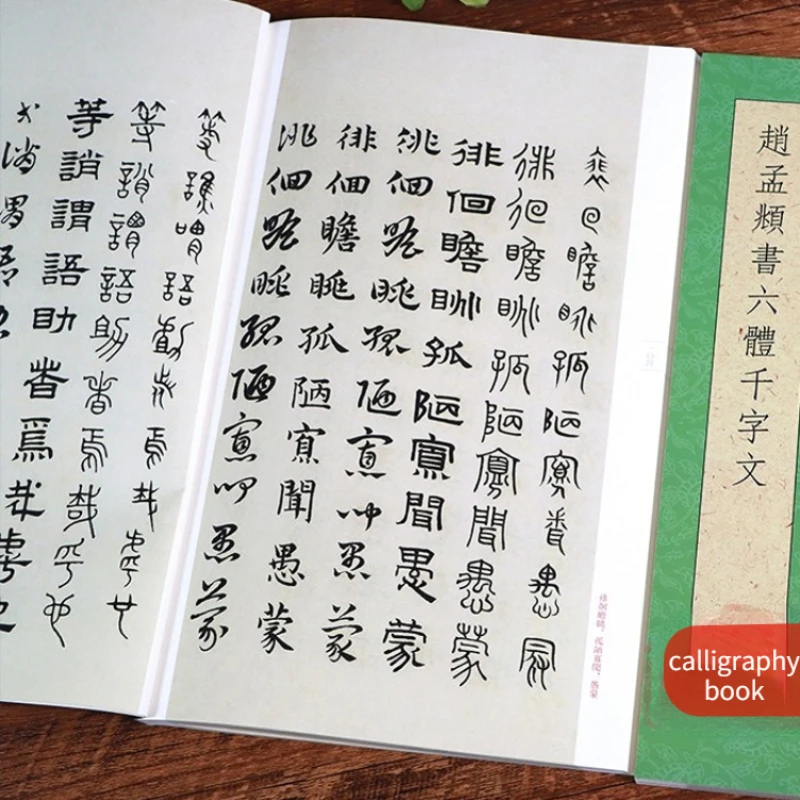 趙孟頫書六體千字文
calligraphy
book
徘徊瞻眺,孤陋寡聞,愚蒙
徘徊瞻眺孤陋寡聞愚蒙
徘徊瞻眺孤陋寡聞愚蒙
徘徊瞻眺孤陋寡聞愚蒙
徘徊瞻眺孤陋寡聞愚蒙
徘徊瞻眺孤陋寡聞愚蒙
徘徊瞻眺孤陋寡聞愚蒙
等誚謂語助者焉哉乎也
等誚謂語助者焉哉乎也
等誚謂語助者焉哉乎也
等誚謂語助